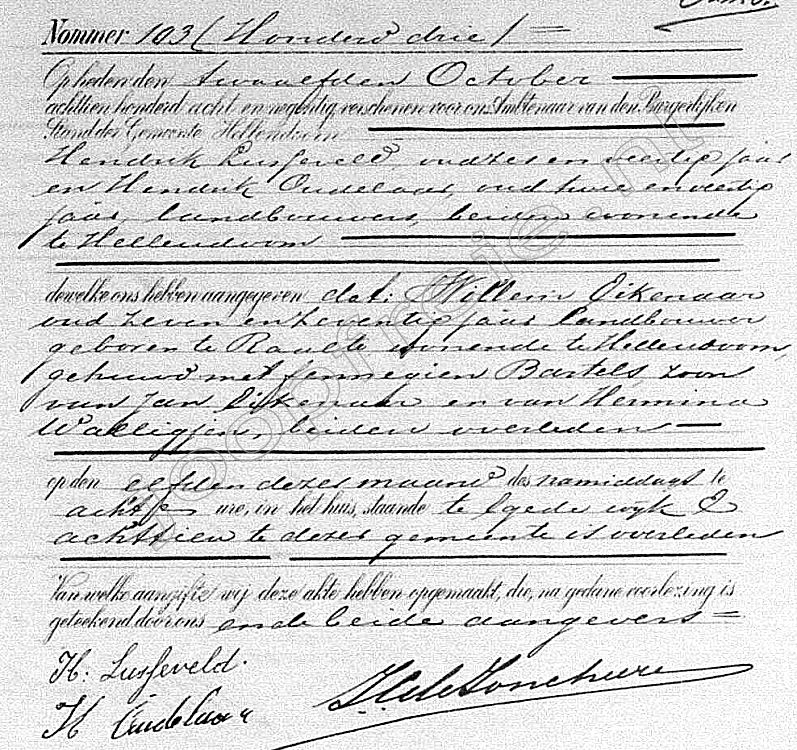 Nommer 103 (Honderd drie) =
Op heden den twaalfden October
achttien honderd acht en negentig, verschenen voor ons Ambtenaar van den Burgerlijken
Stand der Gemeente Hellendoorn
Hendrik Lusseveld, oud zes en veertig jaar
en Hendrik Oudelaar, oud twee en veertig
jaar, landbouwers, beiden wonende
te Hellendoorn
dewelke ons hebben aangegeven dat: Willem Eikenaar
oud zeven en zeventig jaar landbouwer
geboren te Raalte wonende te Hellendoorn,
gehuwd met Fennegien Bartels, zoon
van Jan Eikenaar en van Hermina
beiden overleden
op den elfden dezer maand des namiddags te
acht ure, in het huis, staande te Egede wijk E
achttien te dezer gemeente is overleden
Van welke aangifte wij deze akte hebben opgemaakt, die, na gedane voorlezing is
geteekend door ons en de beide aangevers =
H: Lusseveld.
H Oudelaar